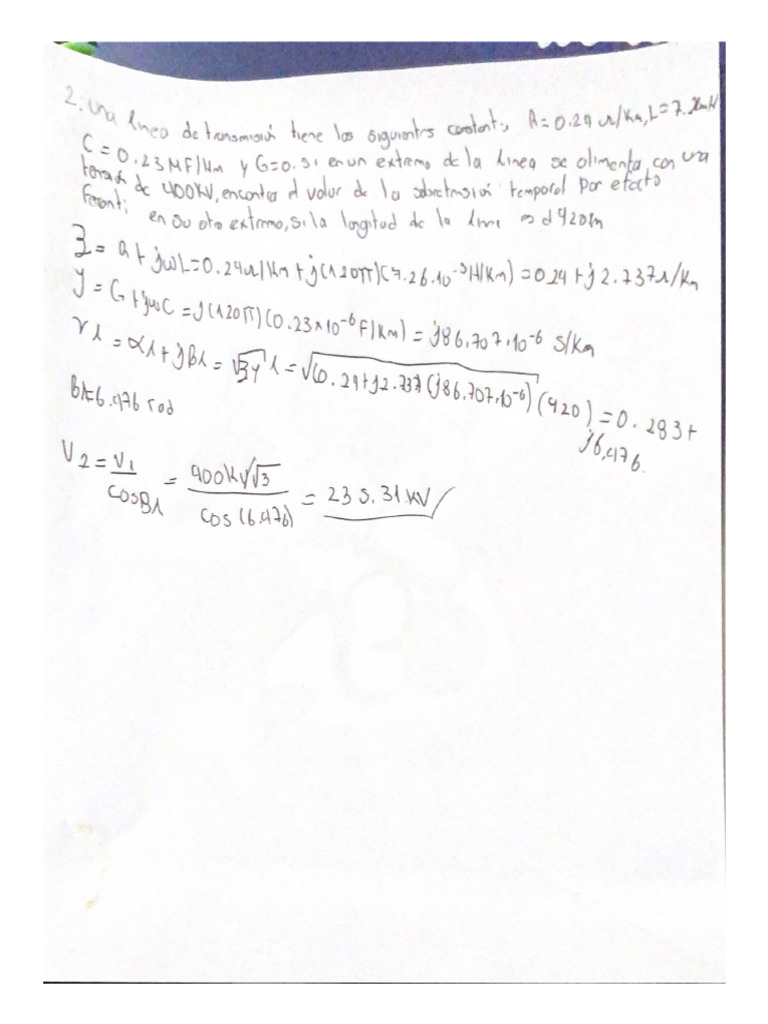 2. Una linea de transmisión tiene las siguientes constantes, R = 0.29 Ω/Km, L = 7.26mH
C = 0.23 MF/Km y G=0. si en un extremo de la linea se alimenta con una
tensión de 400KV, encontra el valor de la sobretensión temporal por efecto
Feranti en su otro extremo, si la longitud de la linea es d 420km
Z = R + jωL = 0.29Ω/Km + j(120π)(7.26.10⁻³H/Km) = 0.29 + j 2.737Ω/Km
y = G + jωC = j(120π)(0.23×10⁻⁶ F/Km) = j86.707.10⁻⁶ S/Km
γλ = αλ + jβλ = √zy λ = √(0.29+j2.737)(j86.707.10⁻⁶) (420) = 0.283 +
j6.476.
βλ=6.476 rad
V2 = V1/cosβλ = 400KV/√3 / cos(6.476) = 235.31 KV